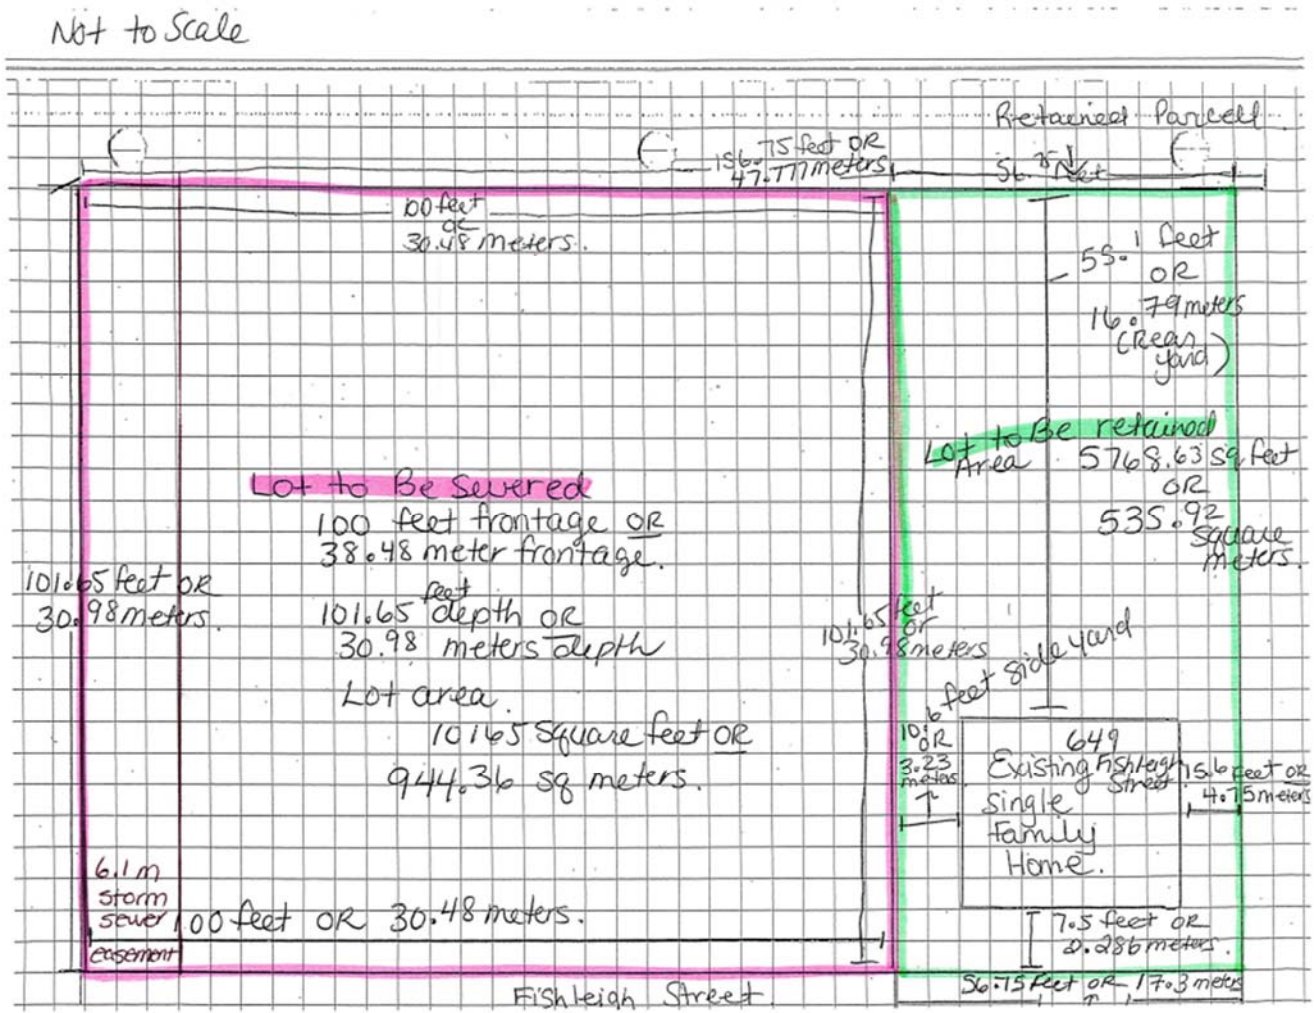 Not to Scale
Retained Parcell
156.75 feet OR
47.777 meters
56.75 feet
100 feet
OR
30.48 meters.
55.1 feet
OR
16.79 meters
(Rear
yard)
Lot to Be retained
Area 5768.63 sq feet
OR
535.92
square
meters.
Lot to Be Severed
100 feet frontage OR
38.48 meter frontage.
101.65 feet depth OR
30.98 meters depth
Lot area.
10165 Square feet OR
944.36 sq meters.
101.65 feet OR
30.98 meters.
101.65 feet
or
30.98 meters
10.6 feet side yard
OR
3.23
meters
649
Existing Fishleigh
Street
Single
Family
Home.
15.6 feet or
4.75 meters
6.1 m
storm
sewer
easement
100 feet OR 30.48 meters.
7.5 feet OR
2.286 meters.
56.75 feet OR 17.3 meters
Fishleigh Street